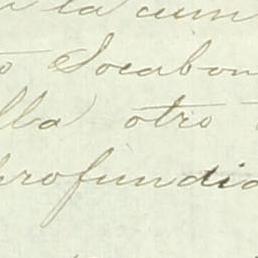 la cum
Socabon
lla otro
profundid